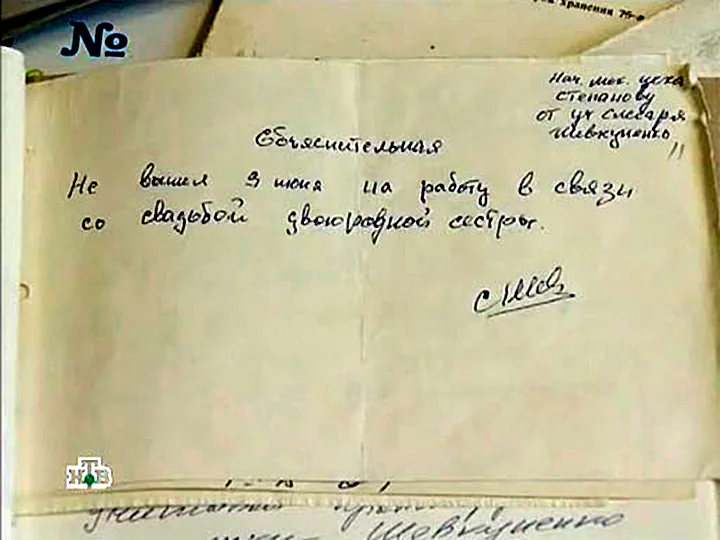 №
хранения 75-
Нач. мех. цеха
Степанову
от уч слесаря
Шевкуненко
Объяснительная
Не вышел 9 июня на работу в связи
со свадьбой двоюродной сестры.
НТВ
Шевкуненко